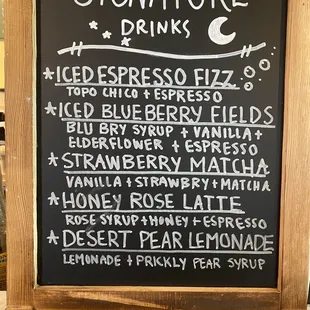 SIGNATURE
DRINKS
* ICED ESPRESSO FIZZ
TOPO CHICO + ESPRESSO
* ICED BLUEBERRY FIELDS
BLU BRY SYRUP + VANILLA +
ELDERFLOWER + ESPRESSO
* STRAWBERRY MATCHA
VANILLA + STRAWBRY + MATCHA
* HONEY ROSE LATTE
ROSE SYRUP + HONEY + ESPRESSO
* DESERT PEAR LEMONADE
LEMONADE + PRICKLY PEAR SYRUP